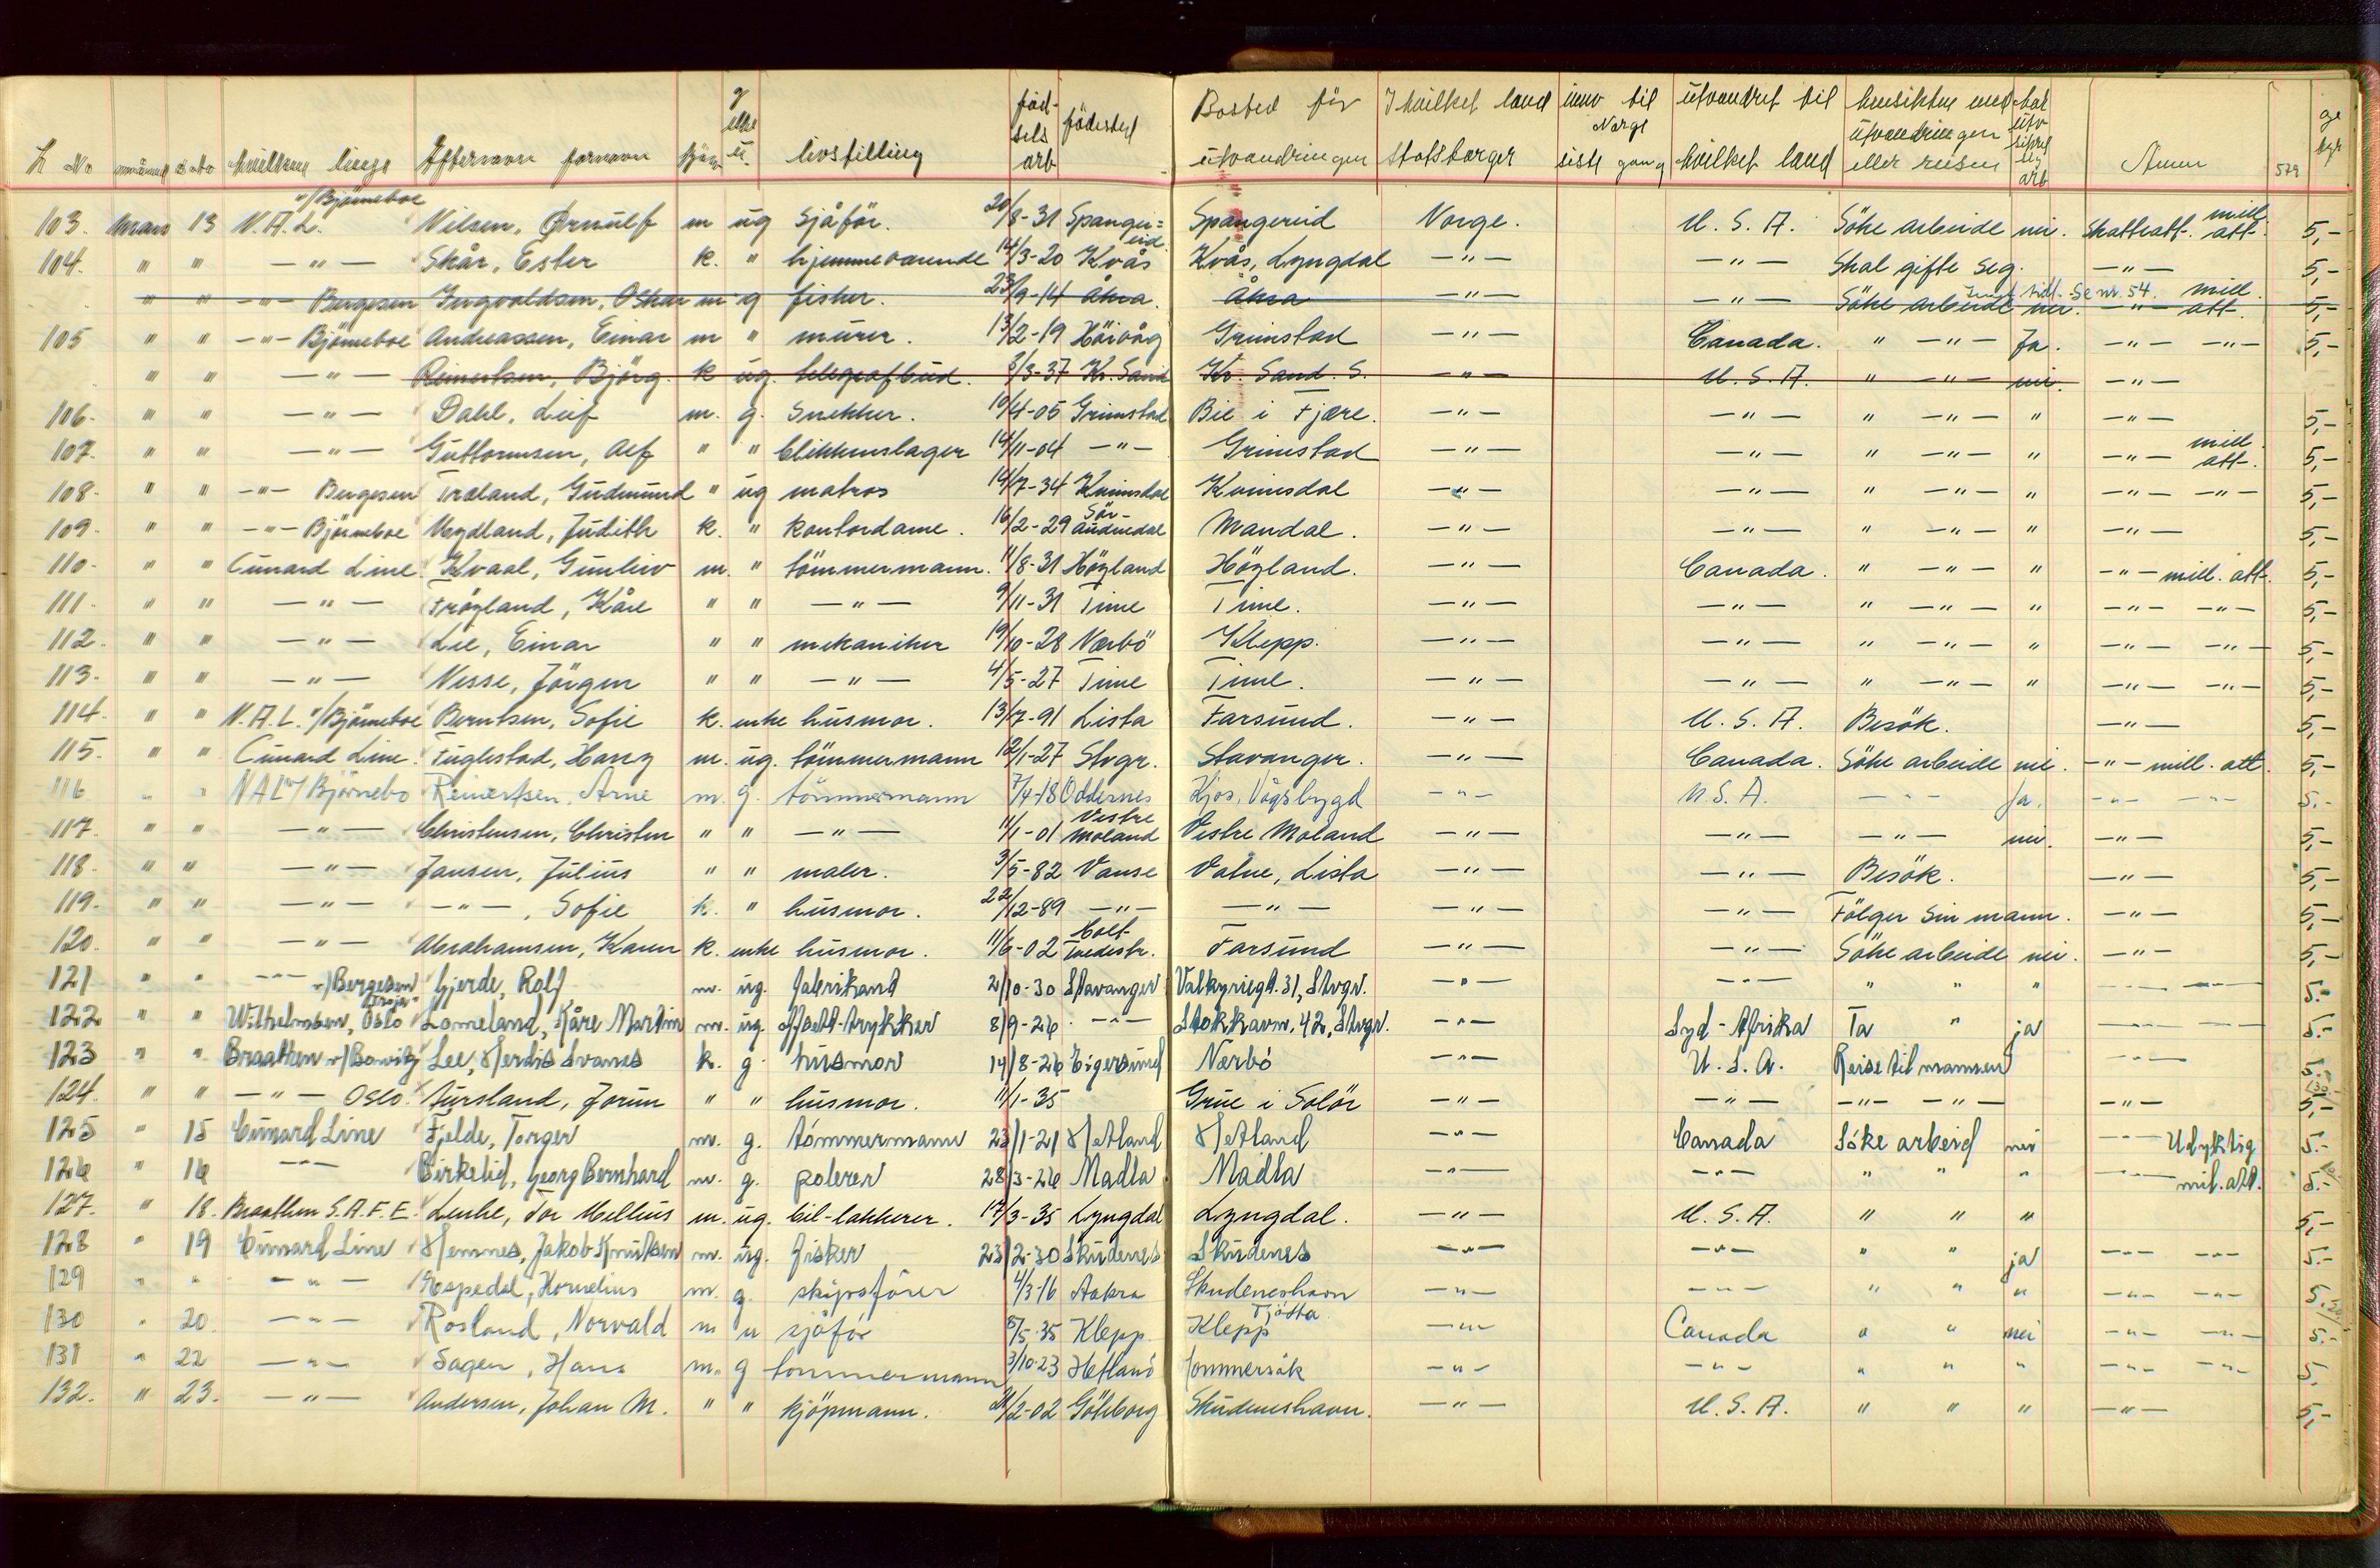 L No måned dato hvilken linje Efternavn fornavn kjøn g enke u. livsstilling föd-sels arb födested Bosted för utvandringen I hvilket land statsborger innv til Norge siste gang utvandret til hvilket land hensikten med utvandringen eller reisen Anm 579
103. mars 13 N.A.L. v/Björneboe Nilsen, Ørnulf m ug sjåför. 20/8-31 Spangereid Spangereid Norge. U.S.A. Söke arbeide nei. Skatteatt. mill. att. 5,-
104. " " -"- Skår, Ester k. " hjemmeværende 14/3-20 Kvås Kvås, Lyngdal -"- -"- Skal gifte seg. -"- 5,-
" " -"- Bergesen Ingvaldsen, Oskar m g fisker. 23/9-14 Åkra. Åkra -"- -"- Söke arbeide nei. Se nr. 54. -"- mill. att. 5,-
105 " " -"- Björneboe Andreassen, Einar m " murer. 13/2-19 Höivåg Grimstad -"- Canada. " -"- Ja. -"- -"- 5,-
" " -"- Reinertsen, Björg. k ug. telegrafbud. 8/3-37 Kr. Sand Kr. Sand. S. -"- U.S.A. " -"- nei. -"-
106. " " -"- Dahl, Leif m. g. Snekker. 10/4-05 Grimstad Bie i Fjære. -"- -"- " -"- " -"- 5,-
107. " " -"- Guttormsen, Alf " " blikkenslager 14/11-04 -"- Grimstad -"- -"- " -"- " -"- mill. att. 5,-
108. " " -"- Bergesen Træland, Gudmund " ug matros 14/7-34 Kvinesdal Kvinesdal -"- -"- " -"- " -"- -"- 5,-
109. " " -"- Björneboe Mydland, Judith k. " kontordame. 16/2-29 Sör-Audnedal Mandal. -"- -"- " -"- " -"- 5,-
110. " " Cunard Line. Kvaal, Gunleiv m. " tömmermann. 11/8-31 Högland Högland. -"- Canada. " -"- " -"- mill. att. 5,-
111. " " -"- Frögland, Kåre " " -"- 9/11-31 Time Time. -"- -"- " -"- " -"- -"- 5,-
112. " " -"- Lie, Einar " " mekaniker 19/10-28 Nærbö Klepp. -"- -"- " -"- " -"- -"- 5,-
113. " " -"- Nesse, Jörgen " " -"- 4/5-27 Time Time. -"- -"- " -"- " -"- -"- 5,-
114. " " N.A.L. v/Björneboe Berntsen, Sofie k. enke husmor. 13/7-91 Lista Farsund. -"- U.S.A. Besök. -"- 5,-
115. " " Cunard Line. Fuglestad, Harry m. ug. tömmermann 12/1-27 Stvgr. Stavanger. -"- Canada. Söke arbeide nei. -"- mill. att. 5,-
116 " " NAL v/ Björnebo Reinertsen, Arne m. g. tömmermann 7/4-18 Oddernes Kjos, Vågsbygd -"- U.S.A. -"- Ja. -"- -"- 5.-
117. " " -"- Christensen, Christen " " -"- 11/1-01 Vestre Moland Vestre Moland -"- -"- -"- nei. -"- 5,-
118. " " -"- Jansen, Julius " " maler. 3/5-82 Vanse Vatne, Lista -"- -"- Besök. -"- 5,-
119. " " -"- -"-, Sofie k. " husmor. 22/12-89 -"- -"- -"- -"- Fölger sin mann. -"- 5,-
120. " " -"- Abrahamsen, Karen k. enke husmor. 11/6-02 Holt Tvedestr. Farsund -"- -"- Söke arbeide nei. -"- 5,-
121 " " -"- v/Bergesen Gjerde, Rolf m. ug. fabrikant 2/10-30 Stavanger Valkyriegt. 31, Stvgr. -"- -"- " " " -"- -"- 5.-
122 " " Wilhelmsen, Oslo "Troja" Lomeland, Kåre Martin m. ug. offsett-trykker 8/9-26 -"- Stokkavn. 42, Stvgr. -"- Syd-Afrika Ta " ja -"- -"- 5.-
123 " " Braathen v/Bowitz Lee, Herdis Svanes k. g husmor 14/8-26 Eigersund Nærbö -"- U.S.A. Reise til mannen -"- 5.-
124. " " -"- Oslo. Aursland, Jorun " " husmor. 11/1-35 Grue i Solör -"- -"- -"- -"- -"- 5,-
125 " 15 Cunard Line Fjelde, Torger m. g. tömmermann 23/1-21 Hetland Hetland -"- Canada Söke arbeid nei -"- Udyktig 5.-
126 " 16 -"- Birkelid, Georg Bernhard m. g. polerer 28/3-26 Madla Madla -"- -"- " " " -"- mil. att. 5.-
127. " 18. Braathen S.A.F.E. Lenke, Tor Mellius m. ug. bil-lakkerer. 17/3-35 Lyngdal Lyngdal. -"- U.S.A. " " " 5,-
128 " 19 Cunard Line Hemnes, Jakob Knutsen m. ug. fisker 23/2-30 Skudenes Skudenes -"- -"- " " ja -"- -"- 5.-
129 " " -"- Espedal, Kornelius m. g. skipsförer 4/3-16 Aakra Skudeneshavn -"- -"- " " " -"- -"- 5.-
130 " 20 -"- Rosland, Norvald m u sjåför 8/5-35 Klepp Klepp Tjötta -"- Canada " " nei -"- -"- 5.-
131 " 22 -"- Sagen, Hans m. g tommermann 3/10-23 Hetland Hommersåk -"- -"- " " " -"- -"- 5.
132. " 23. -"- Andersen, Johan M. " " kjöpmann. 21/2-02 Göteborg Skudeneshavn. -"- U.S.A. " " " -"- 5,-